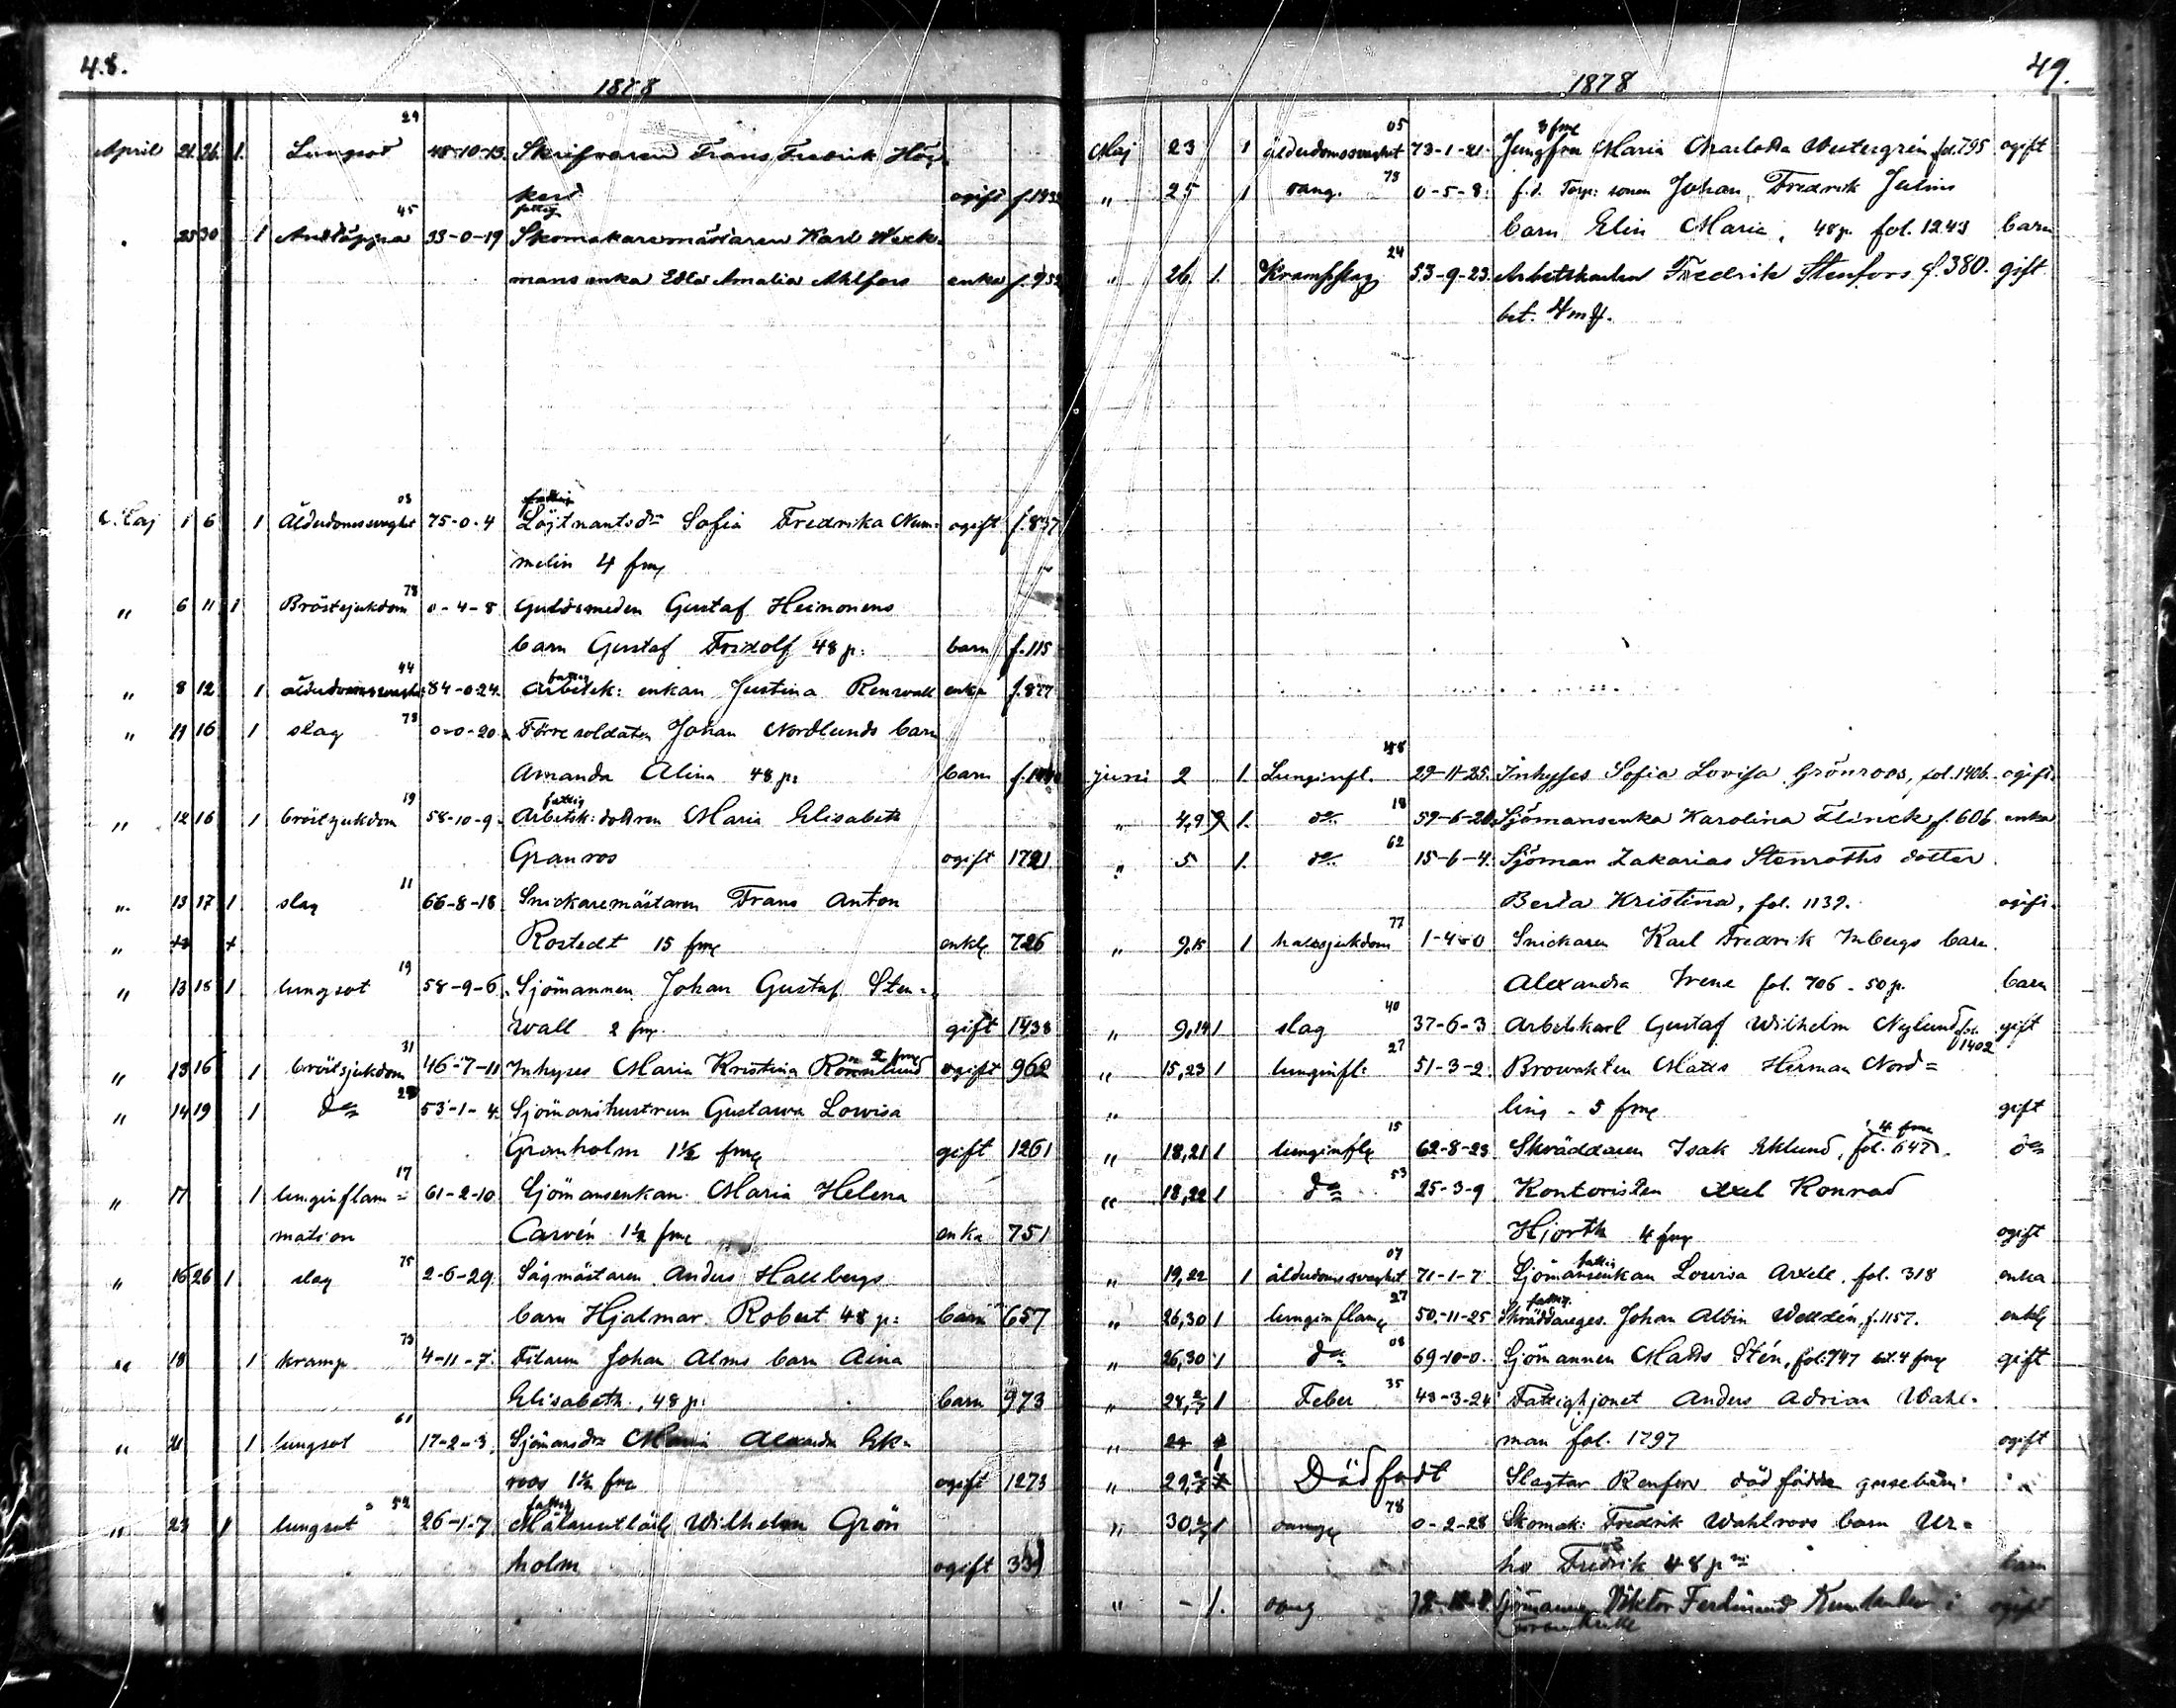 48.
1878
29
April 21 26 1. Lungsot 48-10-13. Skrifvaren Frans Fredrik Hög-
ogift
fattig
45
" 25 30 1 33-0-19 Skomakaremästaren Karl Weck-
mans enka Edla Amalia Ahlfors enka
fattig
03
Maj 1 6 1 Ålderdomssvaghet 75-0-4 Löjtnantsdr Sofia Fredrika Num- ogift f.837
melin 4 fmk
78
" 6 11 1 Bröstsjukdom 0-4-8 Guldsmeden Gustaf Heinonens
barn Gustaf Fridolf 48 p. barn f.115
44 fattig
" 8 12 1 ålderdomssvaghet 84-0-24. Arbetsk: enkan Justina Renwall enka f.877
78
" 11 16 1 slag 0-0-20. Förre soldaten Johan Nordlunds barn
Amanda Alina 48 p: barn
19 fattig
" 12 16 1 bröstsjukdom 58-10-9. Arbetsk: dottren Maria Elisabeth
Granroos ogift 1721
11
" 13 17 1 slag 66-8-18 Snickaremästaren Frans Anton
" Rostedt 15 fmk enkl. 726
19
" 13 18 1 lungsot 58-9-6. Sjömannen Johan Gustaf Sten-
wall 2 fmk. gift 1438
31 2 fmk
" 13 16 1 bröstsjukdom 46-7-11 Inhyses Maria Kristina Rönnlund ogift 962
28
" 14 19 1 do 53-1-4. Sjömanshustrun Gustawa Lowisa
Granholm 1½ fmk gift 1261
17
" 17 1 lunginflam- 61-2-10 Sjömansenkan Maria Helena
mation Carvén 1½ fmk enka 751
75
" 16 26 1 slag 2-6-29. Sågmästaren Anders Hallbergs
barn Hjalmar Robert 48 p: barn 657
73
" 18 1 kramp 4-11-7. Filaren Johan Alms barn Aina
Elisabeth, 48 p: barn 973
61
" 21 1 lungsot 17-2-3. Sjömansdr Maria Alexandra Ek-
roos 1½ fmk ogift 1273
52 fattig
" 23 1 lungsot 26-1-7. Målarelärl. Wilhelm Grön
holm ogift
49.
1878
05 3 fmk
Maj 23 1 ålderdomssvaghet 73-1-21. Jungfru Maria Charlotta Westergrén fol.795 ogift
78
" 25 1 oang. 0-5-8. f.d. Torp: sonen Johan Fredrik Julins
barn Elin Maria, 48 p. fol. 1243 barn
24
" 26. 1. Krampslag 53-9-23. Arbetskarlen Fredrik Stenfors. f.380. gift
bet. 4 mk.
48
juni 2 1. Lunginfl. 29-11-25. Inhyses Sofia Lovisa Grönroos, fol.1406. ogift.
18
" 4,9 1. do 59-6-20. Sjömansenka Karolina Flinck f.606 enka
62
" 5 1. do 15-6-4. Sjöman Zakarias Stenroths dotter
Berta Kristina, fol. 1139. ogift.
77
" 9,15 1 halssjukdom 1-4-0 Snickaren Karl Fredrik Inbergs barn
Alexandra Irene fol. 706 - 50 p. barn
40
" 9,14 1 slag 37-6-3 Arbetskarl Gustaf Wilhelm Nylund fol. 1402 gift
27
" 15,23 1 lunginfl: 51-3-2. Browakten Matts Herman Nord-
" ling - 5 fmk gift
15 4 fmk
" 18,21 1 lunginfl. 62-8-23 Skräddaren Isak Eklund, fol. 647. do
53
" 18,22 1 do 25-3-9 Kontoristen Axel Konrad
Hjorth 4 fmk ogift
07 fattig
" 19,22 1 ålderdomssvaghet 71-1-7 Sjömansenkan Lovisa Axell, fol. 318 enka
27 fattig.
" 26,30 1 lunginflam. 50-11-25 Skräddareges. Johan Albin Wellén, f.1157. enkl.
08
" 26,30 1 do 69-10-0. Sjömannen Matts Stén, fol.747 bet. 4 fmk gift
35
" 28, 2/7 1 Feber 43-3-24 Fattighjonet Anders Adrian Wahl-
" man fol. 1797 ogift
" 29, Dödfödt Slagtar dödfödda gossebarn
78
" 30, 1 oang. 0-2-28 Skomak: Fredrik Wahlroos barn Ur-
ho Fredrik 48 p barn
" - 1. oang Sjömannen Viktor Ferdinand ogift